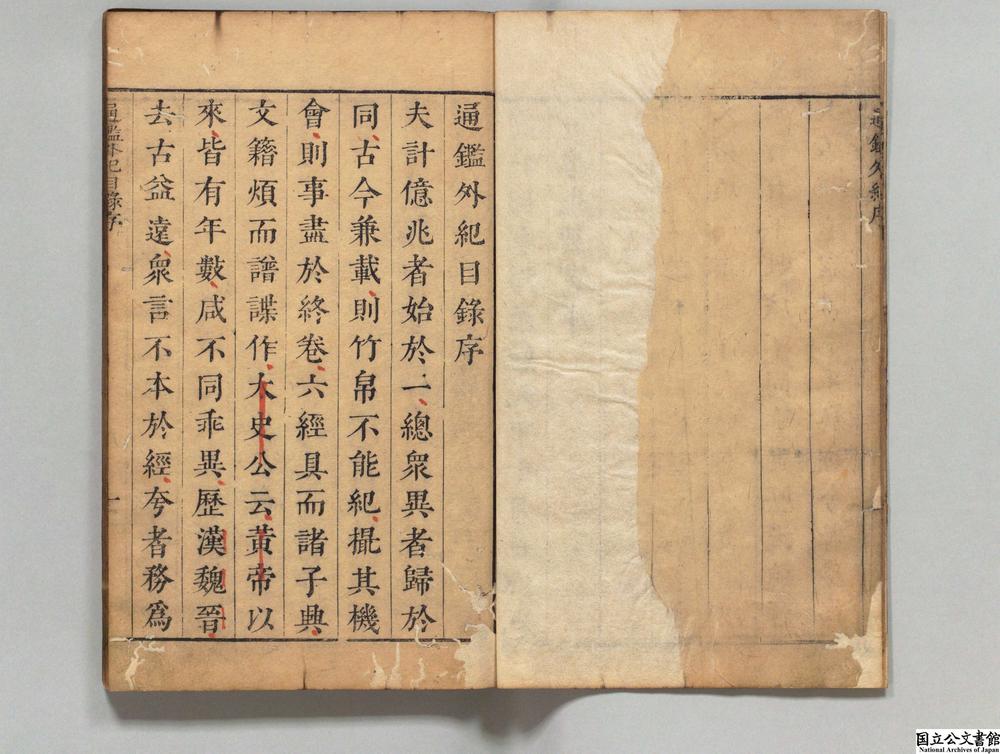 通鑑外紀序
通鑑外紀目錄序
夫計億兆者始於一總衆異者歸於
同古今兼載則竹帛不能紀㩀其機
會則事盡於終卷六經具而諸子興
文籍煩而譜諜作太史公云黃帝以
來皆有年數咸不同乖異歷漢魏晉
去古益遠衆言不本於經夸者務爲
通鑑外紀目錄序
一
国立公文書館
National Archives of Japan